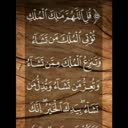 ﴿ قُلِ اللَّهُمَّ مَٰلِكَ الْمُلْكِ
تُؤْتِي الْمُلْكَ مَن تَشَآءُ
وَتَنزِعُ الْمُلْكَ مِمَّن تَشَآءُ
وَتُعِزُّ مَن تَشَآءُ وَتُذِلُّ مَن
تَشَآءُ بِيَدِكَ الْخَيْرُ إِنَّكَ